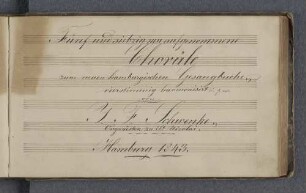 Fünf und siebzig neu aufgenommene
Choräle
zum neuen hamburgischen Gesangbuche
vierstimmig harmonisirt
J F Schwenke
Organisten zu St. Nicolai
Hamburg 1843.